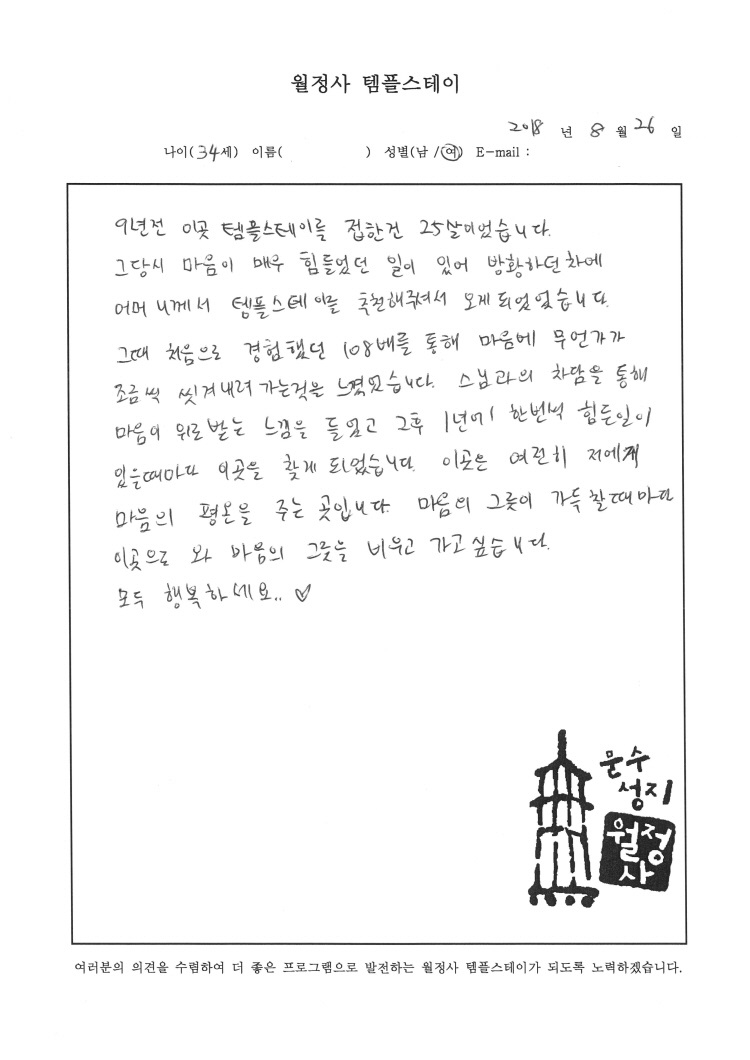 월정사 템플스테이
2018 년 8 월 26 일
나이(34세) 이름( ) 성별(남 /여) E-mail :
9년전 이곳 템플스테이를 접한건 25살이었습니다.
그당시 마음이 매우 힘들었던 일이 있어 방황하던차에
어머니께서 템플스테이를 추천해주셔서 오게되었었습니다.
그때 처음으로 경험했던 108배를 통해 마음에 무언가가
조금씩 씻겨내려 가는것을 느꼈었습니다. 스님과의 차담을 통해
마음이 위로받는 느낌을 들었고 그후 1년에 한번씩 힘든일이
있을때마다 이곳을 찾게 되었습니다. 이곳은 여전히 저에게
마음의 평온을 주는 곳입니다. 마음의 그릇이 가득찰때마다
이곳으로 와 마음의 그릇을 비우고 가고싶습니다.
모두 행복하세요.. ♡
문수
성지
월정
사
여러분의 의견을 수렴하여 더 좋은 프로그램으로 발전하는 월정사 템플스테이가 되도록 노력하겠습니다.